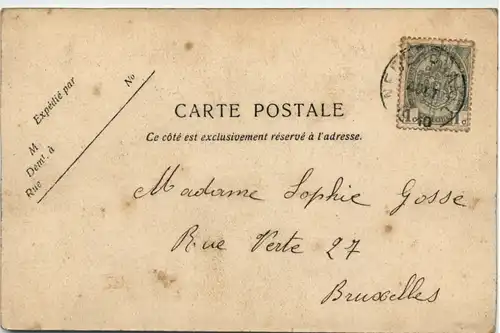 Expédié par
M
Demt. à
Rue
No
CARTE POSTALE
Ce côté est exclusivement réservé à l'adresse.
Madame Sophie Gosse
Rue Verte 27
Bruxelles
10
1 c. 1 c.